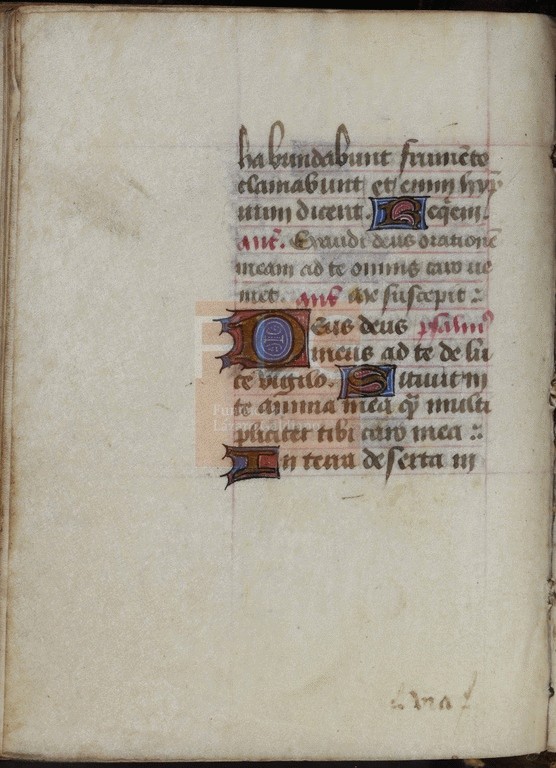 habundabunt frumēto
clamabunt et enim hyp
num dicent. Reqēm.
añt. Exaudi deus orationē
meam ad te omnis caro ve
niet. añt Me suscepit :
Deus deus psalmꝰ
meus ad te de lu
ce vigilo. Sitiuit in
te anima mea qꝫ multi
pliciter tibi caro mea ::
In terra deserta in
Lázaro Galdiano